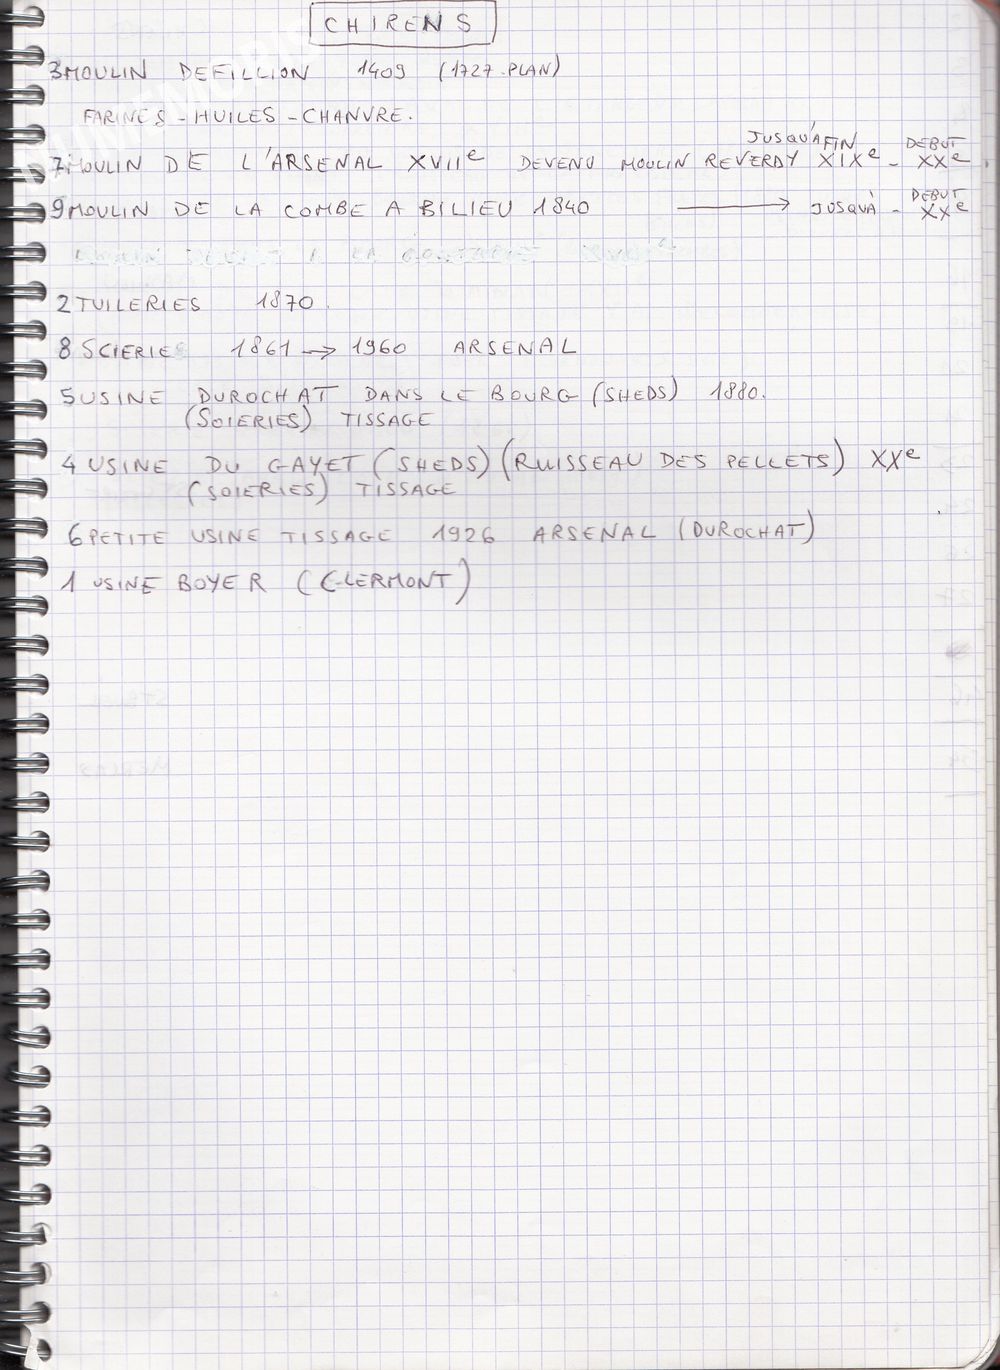 CHIRENS
3 MOULIN DEFILLION 1409 (1727. PLAN)
FARINES - HUILES - CHANVRE.
JUSQU'À FIN DEBUT
7 MOULIN DE L'ARSENAL XVIIe DEVENU MOULIN REVERDY XIXe - XXe
DEBUT
9 MOULIN DE LA COMBE A BILIEU 1840 → JUSQUÀ - XXe
2 TUILERIES 1870.
8 SCIERIES 1861 → 1960 ARSENAL
5 USINE DUROCHAT DANS LE BOURG (SHEDS) 1880.
(SOIERIES) TISSAGE
4 USINE DU GAYET (SHEDS) (RUISSEAU DES PELLETS) XXe
(SOIERIES) TISSAGE
6 PETITE USINE TISSAGE 1926 ARSENAL (DUROCHAT)
1 USINE BOYER (CLERMONT)